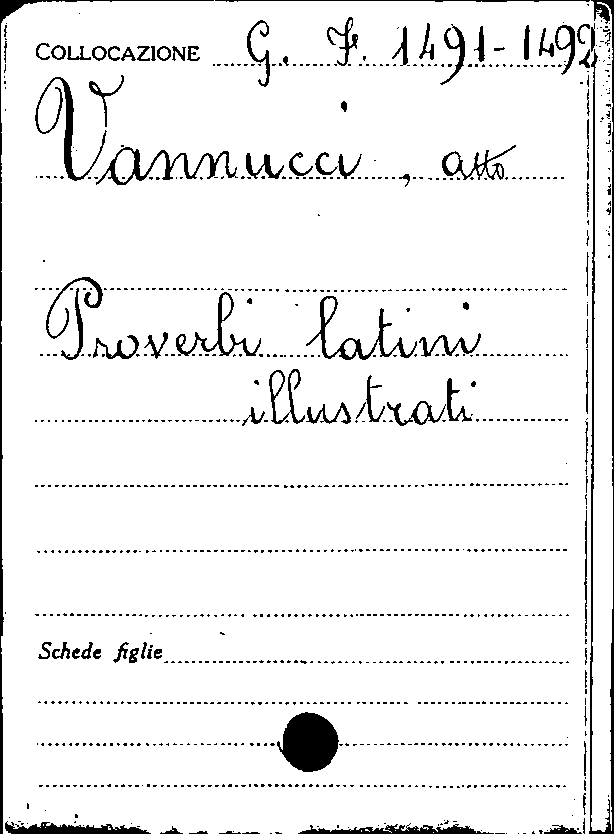 COLLOCAZIONE G. F. 1491-1492
Vannucci, atto
Proverbi latini
illustrati
Schede figlie